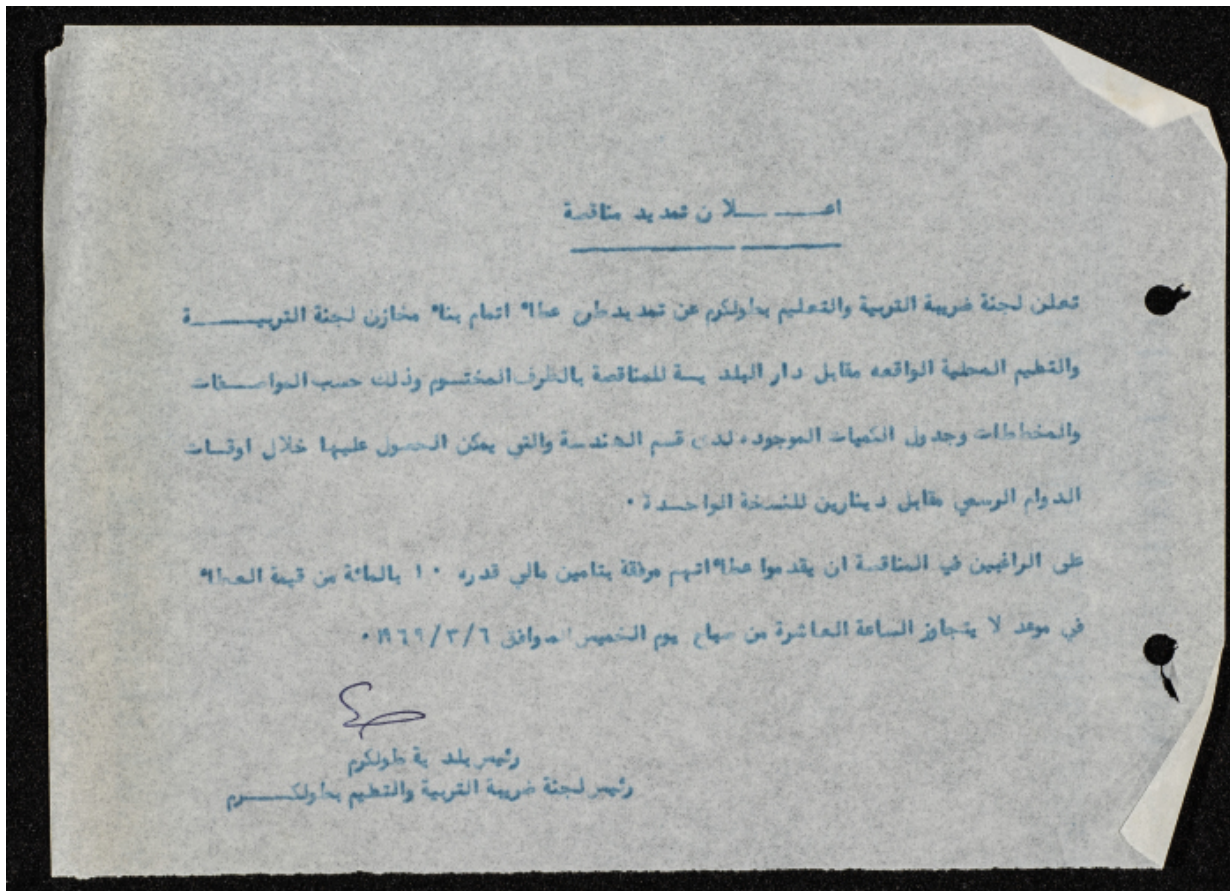 اعــــــلان تمديد مناقصة
تعلن لجنة ضريبة التربية والتعليم بطولكرم عن تمديد طرح عطاء اتمام بناء مخازن لجنة التربيـــــــة
والتعليم المحلية الواقعه مقابل دار البلديـة للمناقصة بالظرف المختـوم وذلك حسب المواصـــفات
والمخططات وجدول الكميات الموجوده لدى قسم الهندسة والتي يمكن الحصول عليها خلال اوقـات
الدوام الرسمي مقابل دينارين للنسخة الواحـدة .
على الراغبين في المناقصة ان يقدموا عطاءاتهم مرفقة بتامين مالي قدره ١٠ بالمائة من قيمة العطاء
في موعد لا يتجاوز الساعة العاشرة من صباح يوم الخميس الموافق ١٩٦٩/٣/٦ .
رئيس بلدية طولكرم
رئيس لجنة ضريبة التربية والتعليم بطولكــــرم